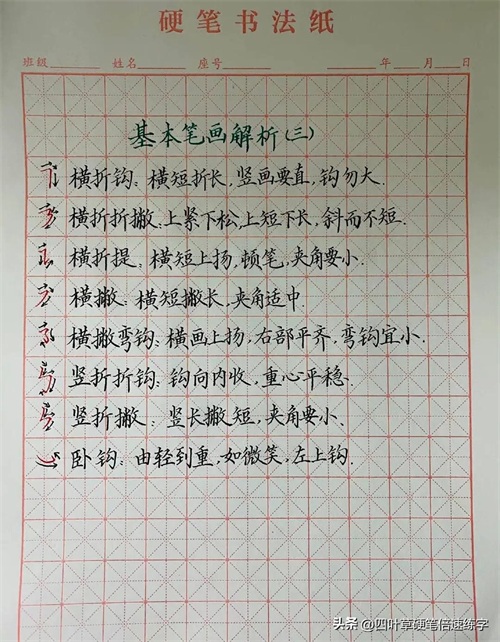 硬笔书法纸
班级 姓名 座号 年 月 日
基本笔画解析(三)
横折钩:横短折长,竖画要直,钩勿大.
横折折撇:上紧下松,上短下长,斜而不短.
横折提:横短上扬,顿笔,夹角要小.
横撇:横短撇长,夹角适中.
横撇弯钩:横画上扬,右部平齐,弯钩宜小.
竖折折钩:钩向内收,重心平稳.
竖折撇:竖长撇短,夹角要小.
卧钩:由轻到重,如微笑,左上钩.
头条 @四叶草硬笔倍速练字